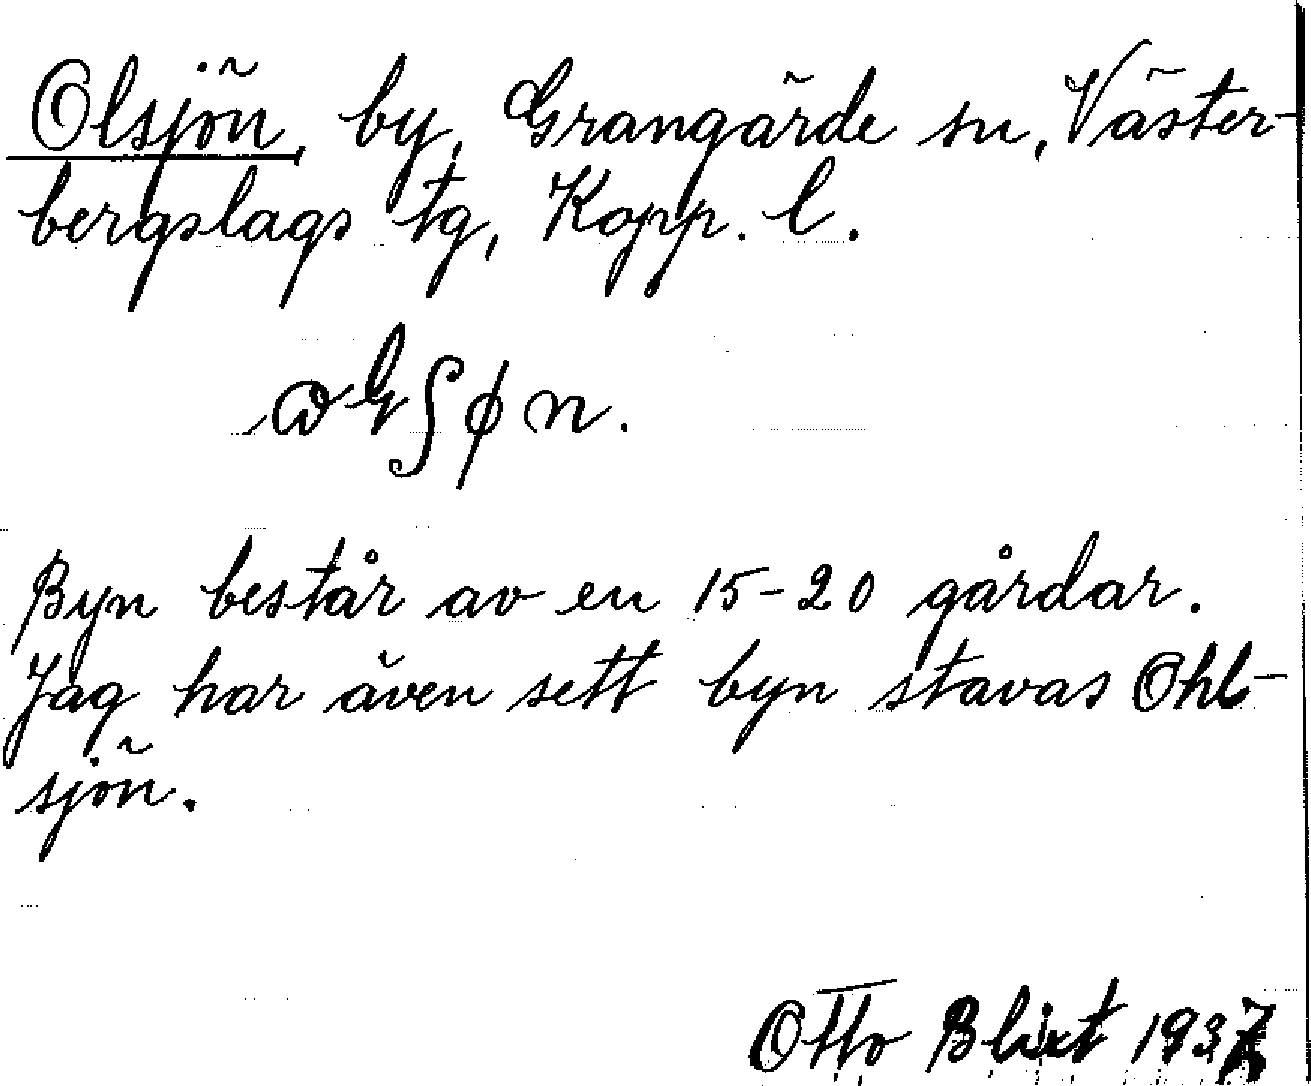 Olsjön, by, Grangärde sn, Väster-
bergslags tg, Kopp. l.
Byn består av en 15-20 gårdar.
Jag har även sett byn stavas Ohl-
sjön.
Otto Blixt 1937